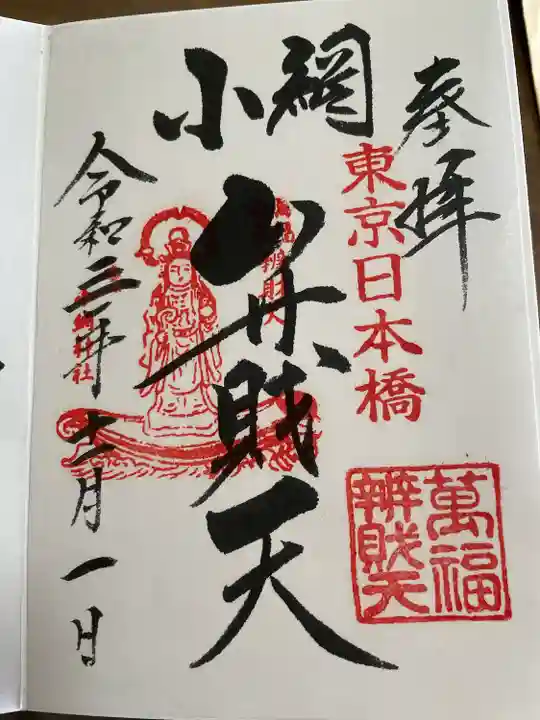 奉拝
東京日本橋
萬福
辨財天
小網
弁財天
萬福
辨財天
令和三年
神社
十二月一日